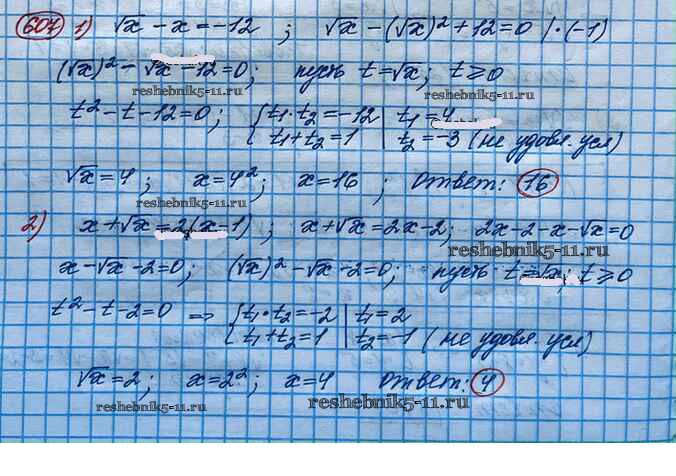 607 1) √x - x = -12 ; √x - (√x)² + 12 = 0 | · (-1)
(√x)² - √x - 12 = 0 ; пусть t = √x ; t ≥ 0
reshebnik5-11.ru reshebnik5-11.ru
t² - t - 12 = 0 ; { t₁ · t₂ = -12 | t₁ = 4
t₁ + t₂ = 1 | t₂ = -3 (не удовл. усл)
reshebnik5-11.ru
√x = 4 ; x = 4² ; x = 16 ; Ответ: 16
reshebnik5-11.ru
2) x + √x = 2(x - 1) ; x + √x = 2x - 2 ; 2x - 2 - x - √x = 0
reshebnik5-11.ru
x - √x - 2 = 0 ; (√x)² - √x - 2 = 0 ; пусть t = √x ; t ≥ 0
t² - t - 2 = 0 ⇒ { t₁ · t₂ = -2 | t₁ = 2
t₁ + t₂ = 1 | t₂ = -1 (не удовл. усл)
√x = 2 ; x = 2² ; x = 4 Ответ: 4
reshebnik5-11.ru reshebnik5-11.ru